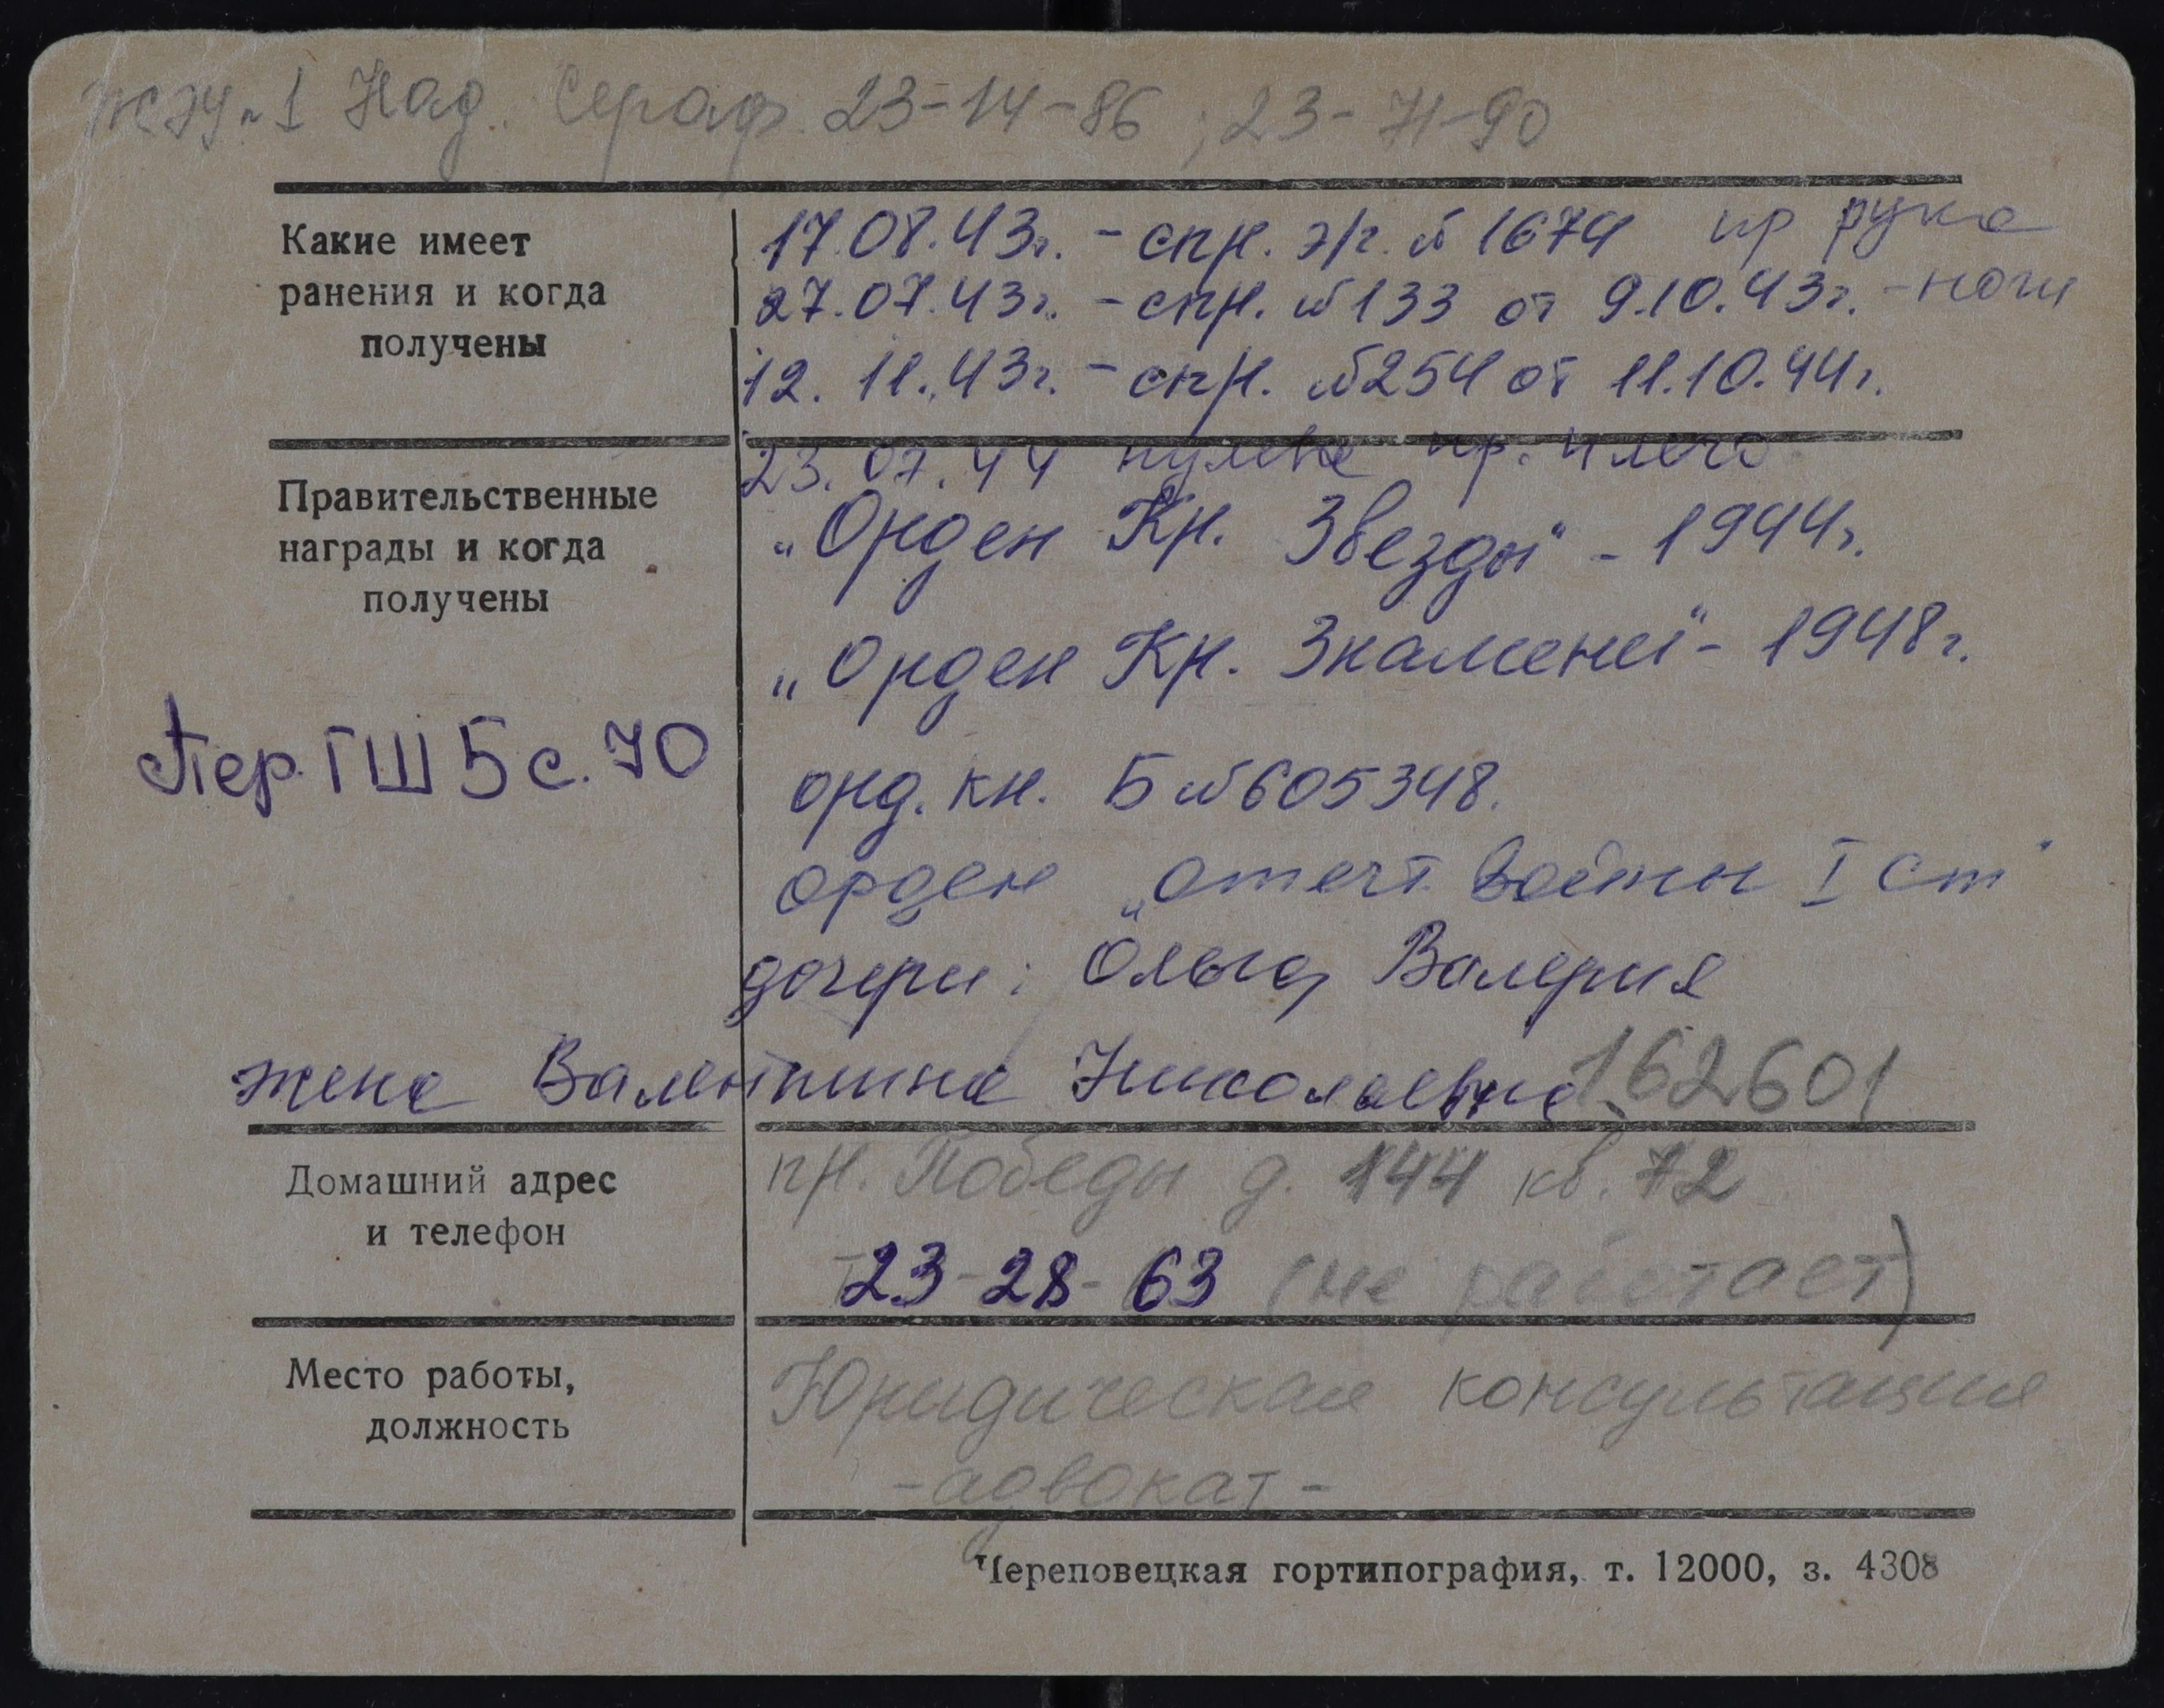 ЖЭУ-1 Над. Сераф. 23-14-86; 23-71-90
Какие имеет
ранения и когда
получены
17.08.43г. - спр. э/г. № 1674 пр рука
27.07.43г. - спр. № 133 от 9.10.43г. - ноги
12.11.43г. - спр. № 254 от 11.10.44г.
23.07.44 пулев пр. плечо
Правительственные
награды и когда
получены
„Орден Кр. Звезды" - 1944г.
„Орден Кр. Знамени" - 1948г.
Пер. ГШ 5 с. 70
орд. кн. Б № 605348.
орден „отеч. войны I ст"
дочери: Ольга, Валерия
жена Валентина Николаевна 162601
Домашний адрес
и телефон
пр. Победы д. 144 кв. 72
т 23-28-63 (не работает)
Место работы,
должность
Юридическая консультация
- адвокат -
Череповецкая гортипография, т. 12000, з. 4308